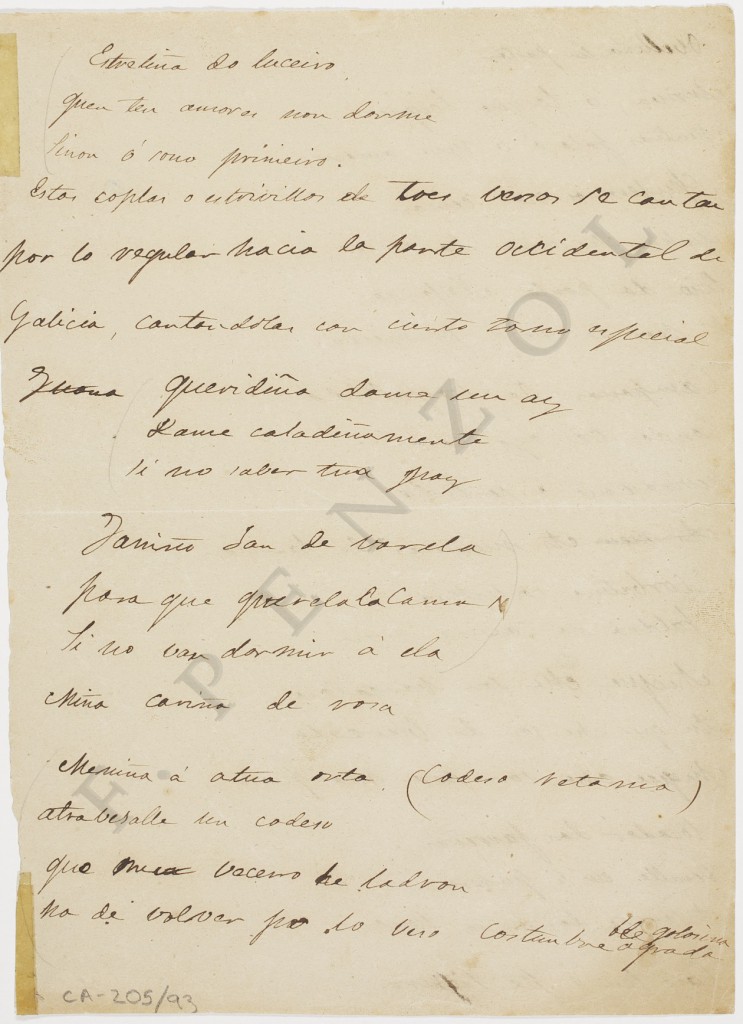 Estreliña do luceiro
quen ten amores non dorme
Sinon ó sono primeiro.
Estas coplas o estrivillos de tres versos se cantan
por lo regular hacia la parte occidental de
Galicia, cantandolas con cierto tono especial
Juana queridiña dama un ay
Dame caladiñamente
Si no saber tua pay
Janiño Jan de varela
para que querela la cama
Si no vas dormir á ela
Miña cariña de rosa
Meniña á atua orta (Codeso retama)
atravesalle un codeso
que veceiro he ladron
ha de volver po lo veso costumbre
he golosina
agrada
F. PENZOL
CA-205/93